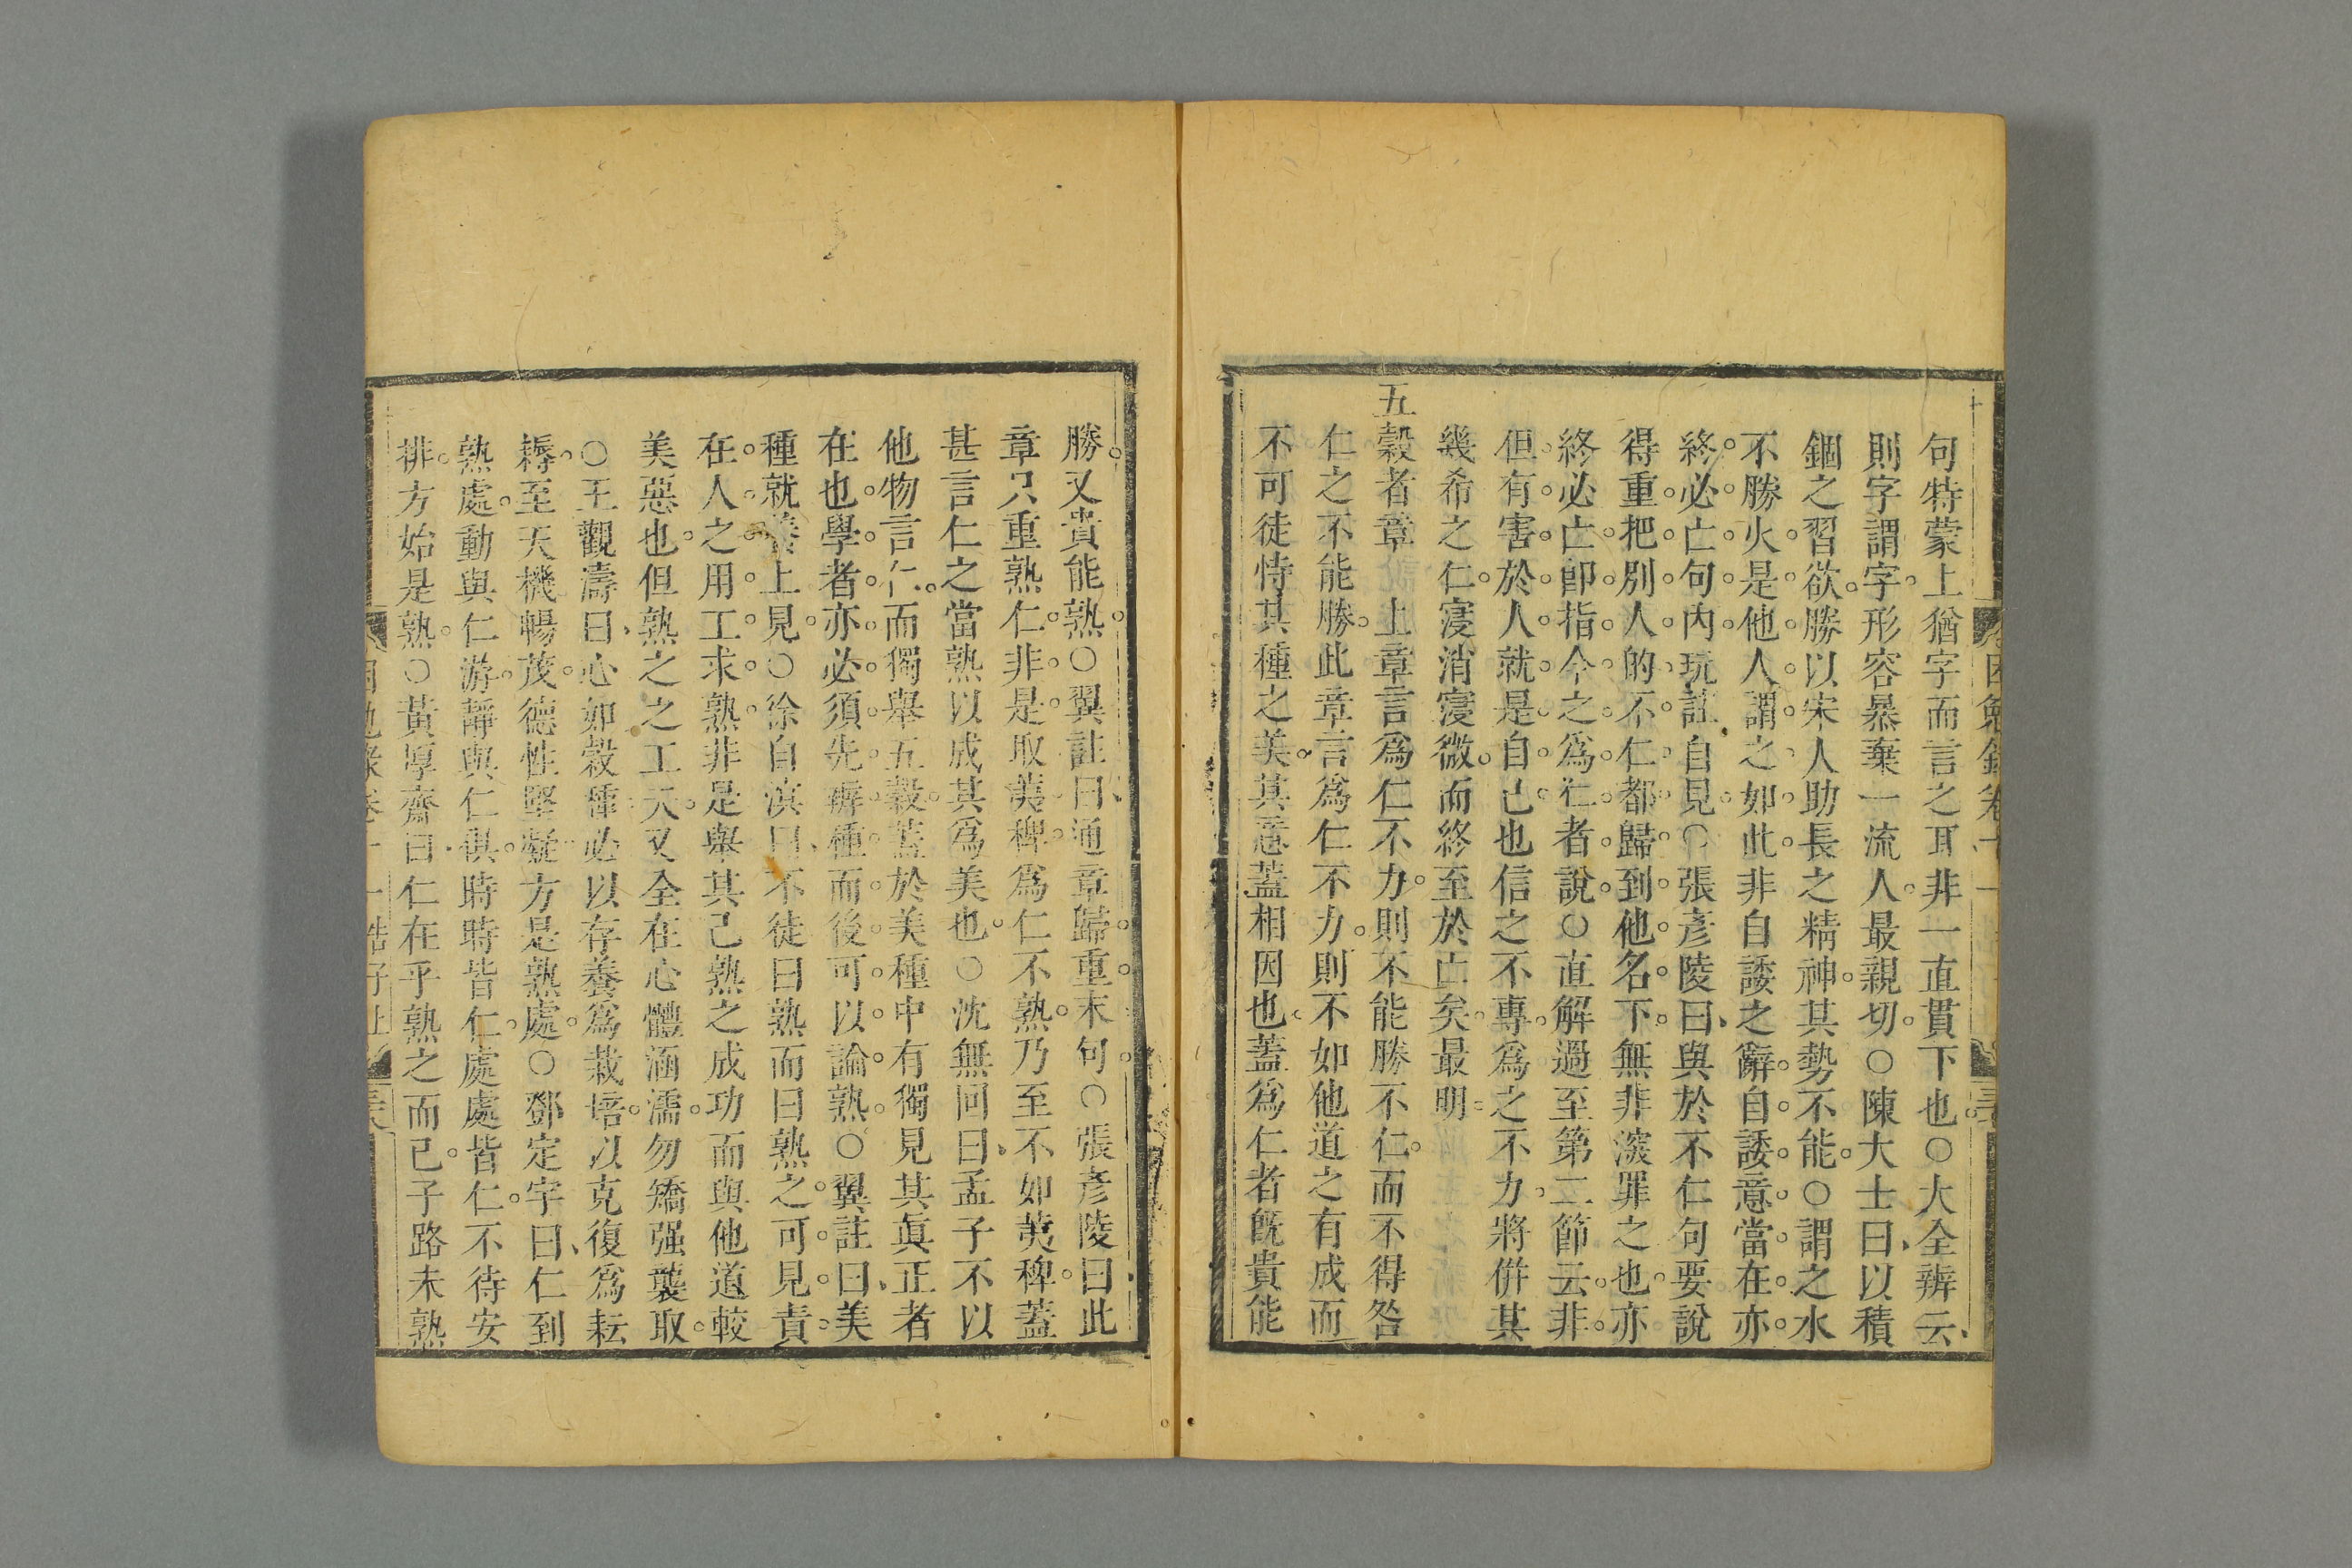 句特蒙上猶字而言之耳非一直貫下也○大全辨云
則字謂字形容暴棄一流人最親切○陳大士曰以積
錮之習欲勝以宋人助長之精神其勢不能○謂之水
不勝火是他人謂之如此非自諉之辭自諉意當在亦
終必亡句內玩註自見○張彥陵曰與於不仁句要說
得重把別人的不仁都歸到他名下無非深罪之也亦
終必亡卽指今之爲仁者說○直解過至第二節云非
但有害於人就是自己也信之不專爲之不力將併其
幾希之仁寖消寖微而終至於亡矣最明
五穀者章 上章言爲仁不力則不能勝不仁而不得咎
仁之不能勝此章言爲仁不力則不如他道之有成而
不可徒恃其種之美其意蓋相因也蓋爲仁者旣貴能
勝又貴能熟○翼註曰通章歸重末句○張彥陵曰此
章只重熟仁非是取荑稗爲仁不熟乃至不如荑稗蓋
甚言仁之當熟以成其爲美也○沈無回曰孟子不以
他物言仁而獨舉五穀蓋於美種中有獨見其眞正者
在也學者亦必須先辨種而後可以論熟○翼註曰美
種就養上見○徐自溟曰不徒曰熟而曰熟之可見責
在人之用工求熟非是舉其己熟之成功而與他道較
美惡也但熟之之工夫又全在心體涵濡勿矯强襲取
○王觀濤曰心如穀種必以存養爲栽培以克復爲耘
耨至天機暢茂德性堅凝方是熟處○鄧定宇曰仁到
熟處動與仁游靜與仁俱時時皆仁處處皆仁不待安
排方始是熟○黃厚齋曰仁在乎熟之而已子路未熟